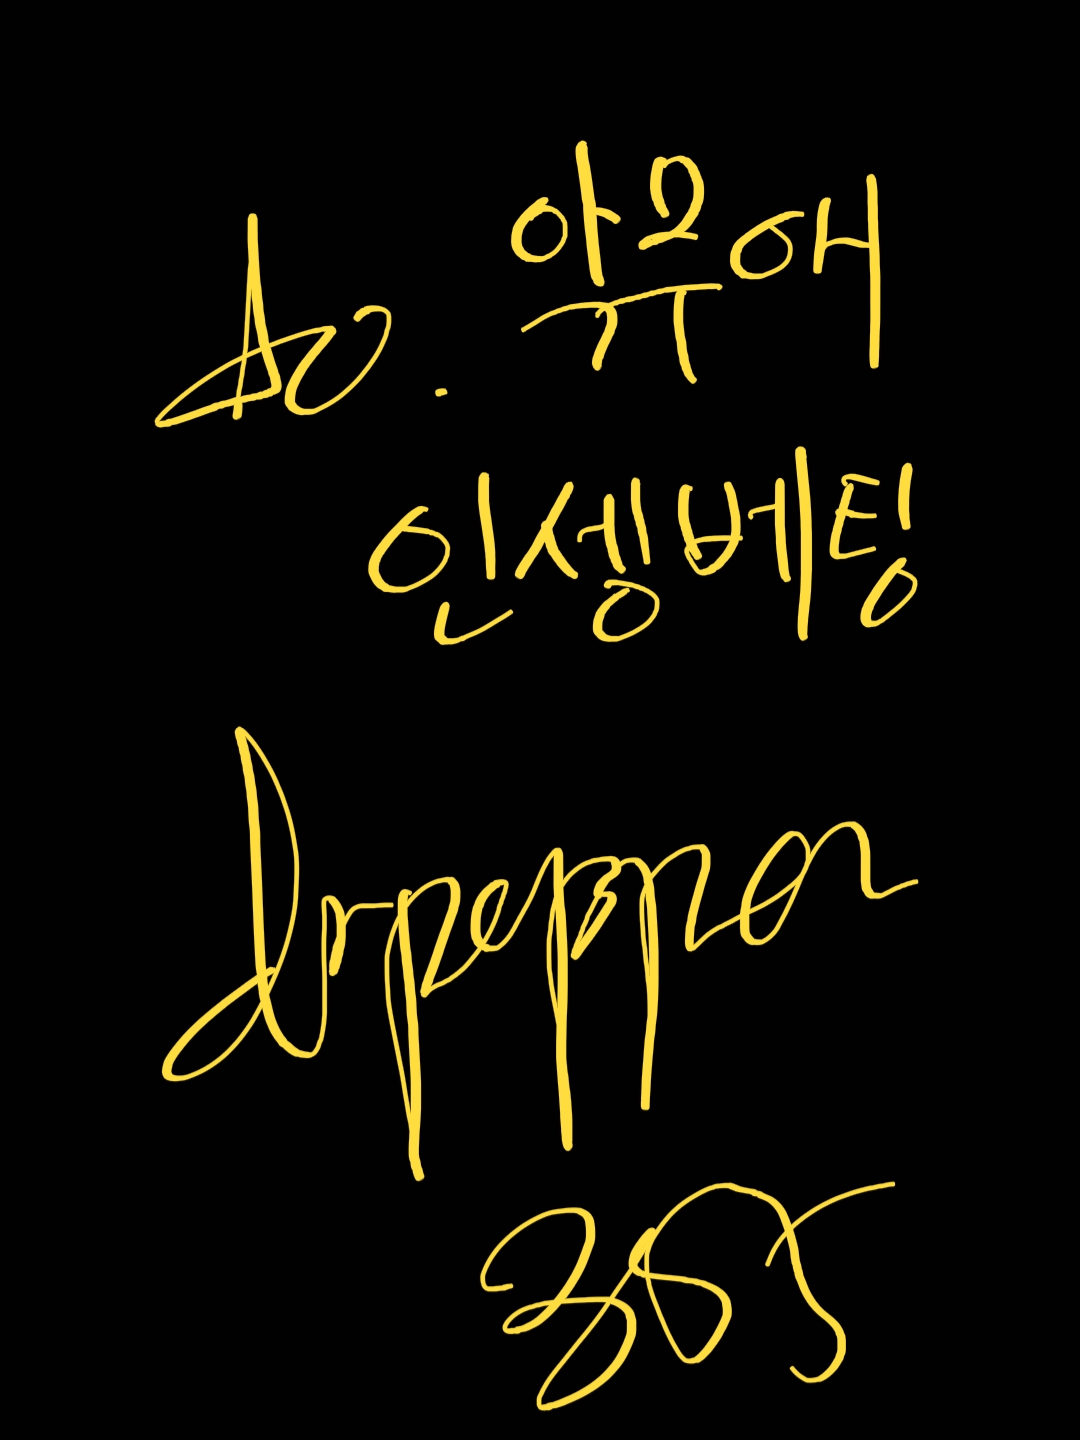 to. 악유애
인생베팅
drpepper
365